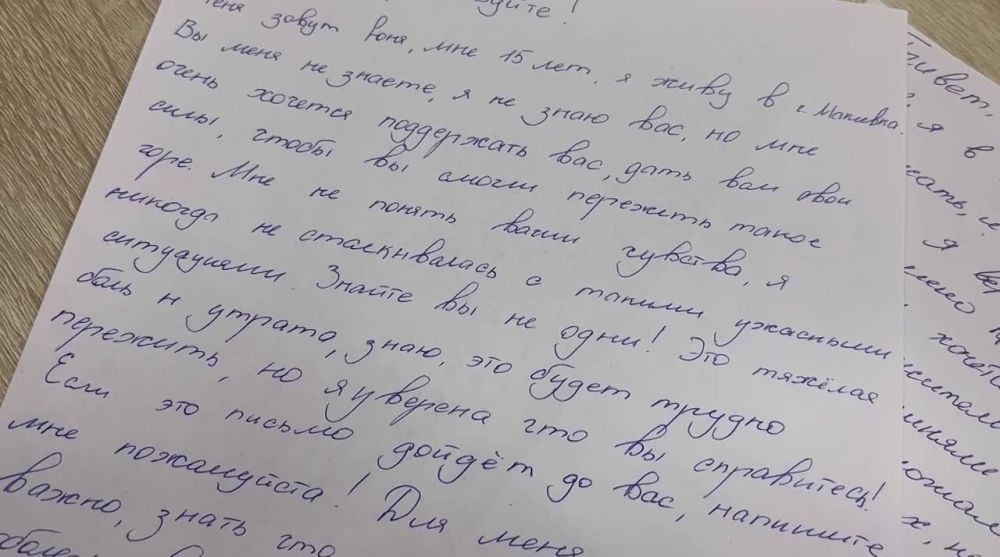 вуйте!
меня зовут Соня, мне 15 лет, я живу в г. Макеевка.
Вы меня не знаете, я не знаю вас, но мне
очень хочется поддержать вас, дать вам свои
силы, чтобы вы смогли пережить такое
горе. Мне не понять ваши чувства, я
никогда не сталкивалась с такими ужасными
ситуациями. Знайте вы не одни! Это тяжёлая
боль и утрата, знаю, это будет трудно
пережить, но я уверена что вы справитесь!
Если это письмо дойдёт до вас, напишите
мне пожалуйста! Для меня
важно, знать что
Привет,
я в
я
хочется